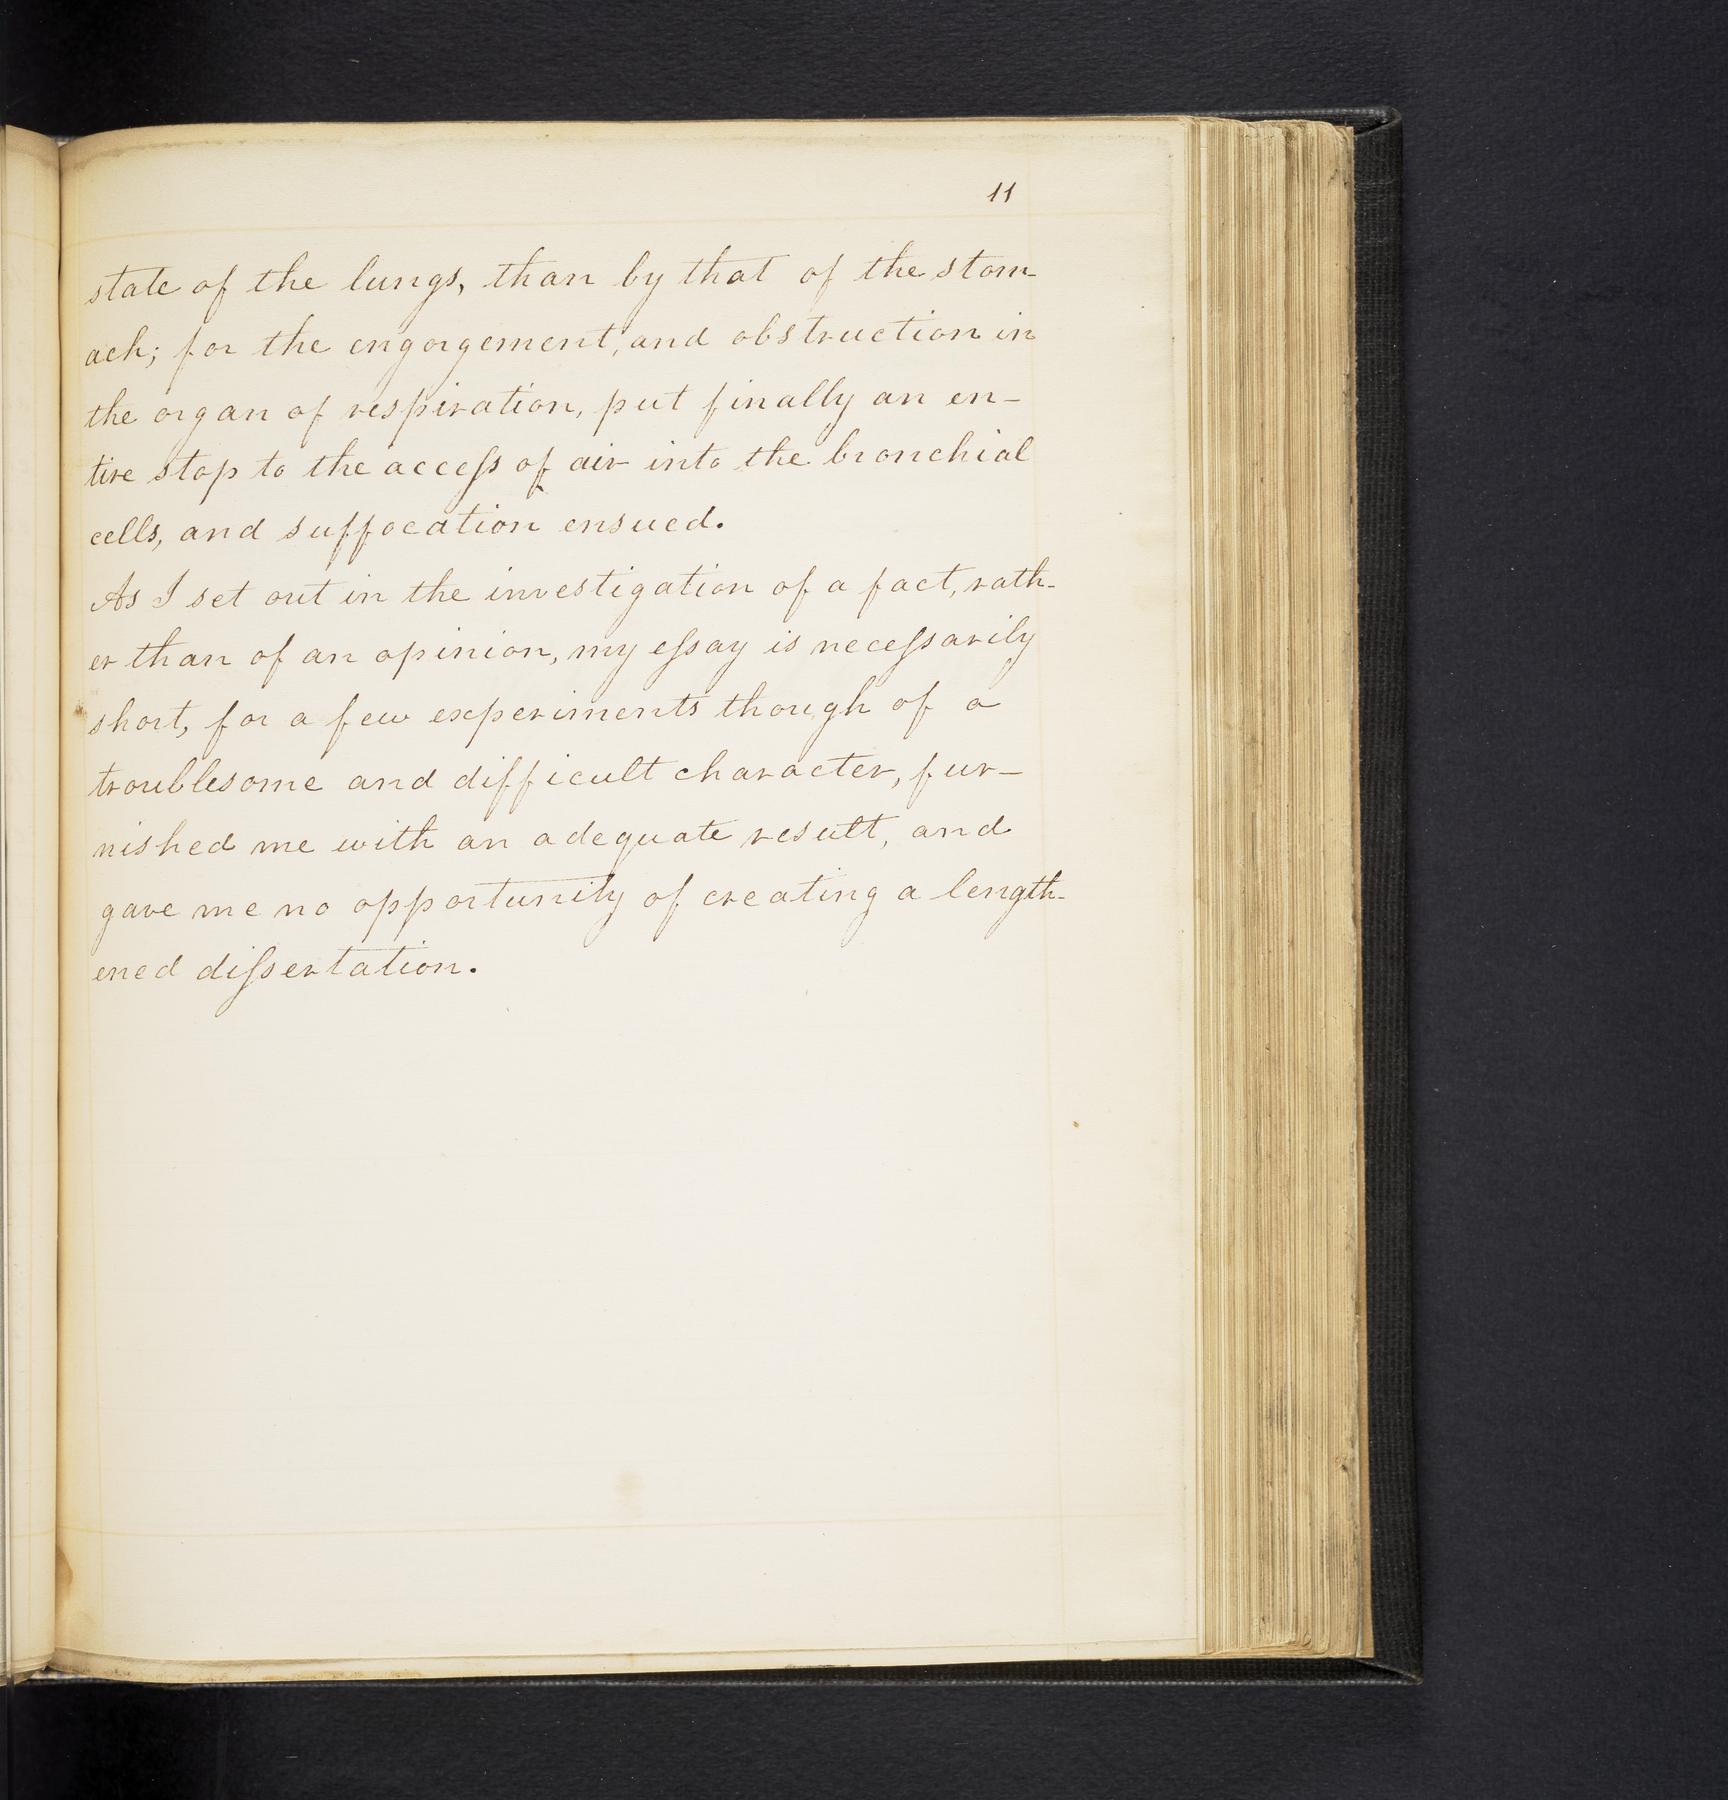 11
state of the lungs, than by that of the stom-
ach; for the engorgement, and obstruction in
the organ of respiration, put finally an en-
tire stop to the acceſs of air into the bronchial
cells, and suffocation ensued.
As I set out in the investigation of a fact, rath-
er than of an opinion, my eſsay is neceſsarily
short, for a few experiments though of a
troublesome and difficult character, fur-
nished me with an adequate result, and
gave me no opportunity of creating a length-
ened diſsertation.